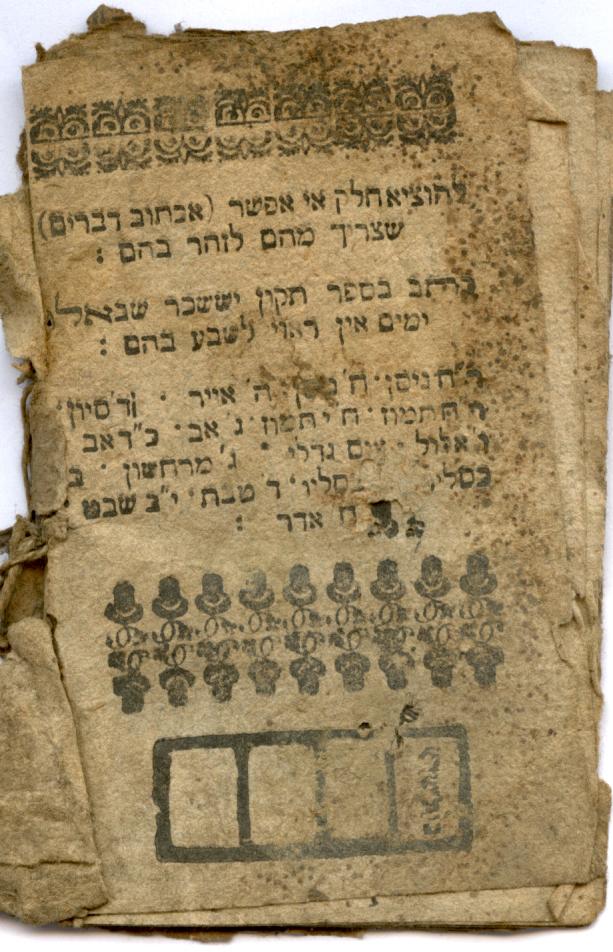 להוציא חלק אי אפשר (אכתוב דברים)
שצריך מהם לזהר בהם :
כתב בספר תקון יששכר שבאלו
ימים אין ראוי לשבע בהם :
ר״ח ניסן · ח׳ ניסן ה׳ אייר · וד׳ סיון ·
תמוז · ג׳ אב · כ״ד אב
ו׳ אלול · צום גדלי׳ · ג׳ מרחשון · ב׳
כסליו · ד׳ טבת · י״ב שבט
אדר :